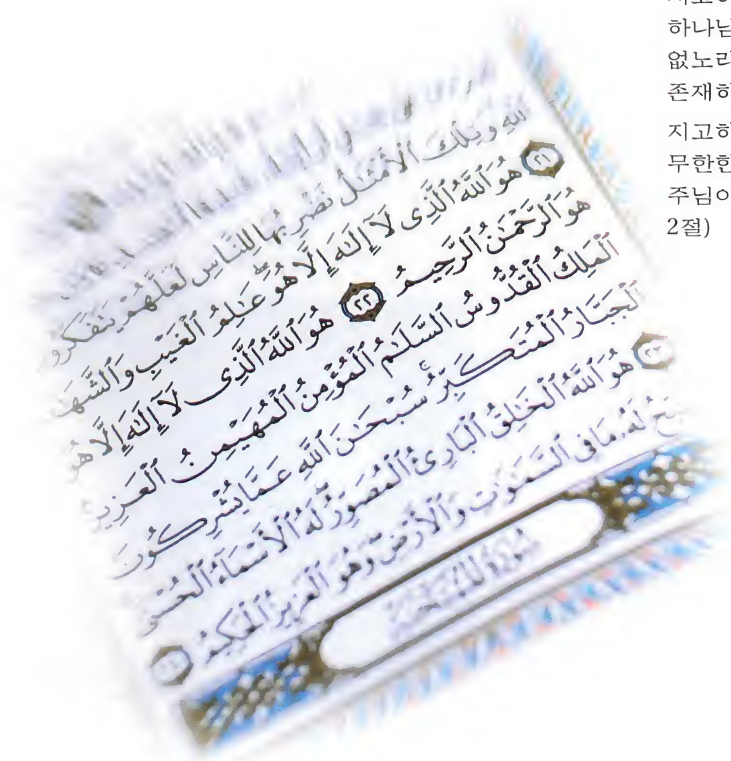 하나님
없노라
존재하
지고하
무한한
주님이
2절)
للَّهِ وَتِلْكَ ٱلْأَمْثَـٰلُ نَضْرِبُهَا لِلنَّاسِ لَعَلَّهُمْ يَتَفَكَّرُو
٢١ هُوَ ٱللَّهُ ٱلَّذِى لَآ إِلَـٰهَ إِلَّا هُوَ ۖ عَـٰلِمُ ٱلْغَيْبِ وَٱلشَّهَـ
هُوَ ٱلرَّحْمَـٰنُ ٱلرَّحِيمُ ٢٢ هُوَ ٱللَّهُ ٱلَّذِى لَآ إِلَـٰهَ إِلَّا هُوَ
ٱلْمَلِكُ ٱلْقُدُّوسُ ٱلسَّلَـٰمُ ٱلْمُؤْمِنُ ٱلْمُهَيْمِنُ ٱلْعَزِيزُ
ٱلْجَبَّارُ ٱلْمُتَكَبِّرُ ۚ سُبْحَـٰنَ ٱللَّهِ عَمَّا يُشْرِكُونَ
٢٣ هُوَ ٱللَّهُ ٱلْخَـٰلِقُ ٱلْبَارِئُ ٱلْمُصَوِّرُ ۖ لَهُ ٱلْأَسْمَآءُ ٱلْحُسْنَىٰ
ـبِّحُ لَهُۥ مَا فِى ٱلسَّمَـٰوَٰتِ وَٱلْأَرْضِ ۖ وَهُوَ ٱلْعَزِيزُ ٱلْحَكِيمُ ٢٤